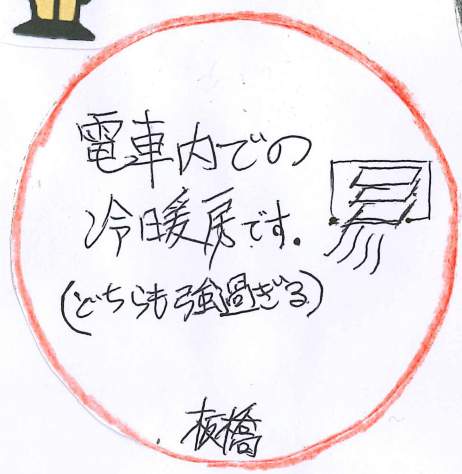 電車内での
冷暖房です.
(どちらも強過ぎる)
板橋